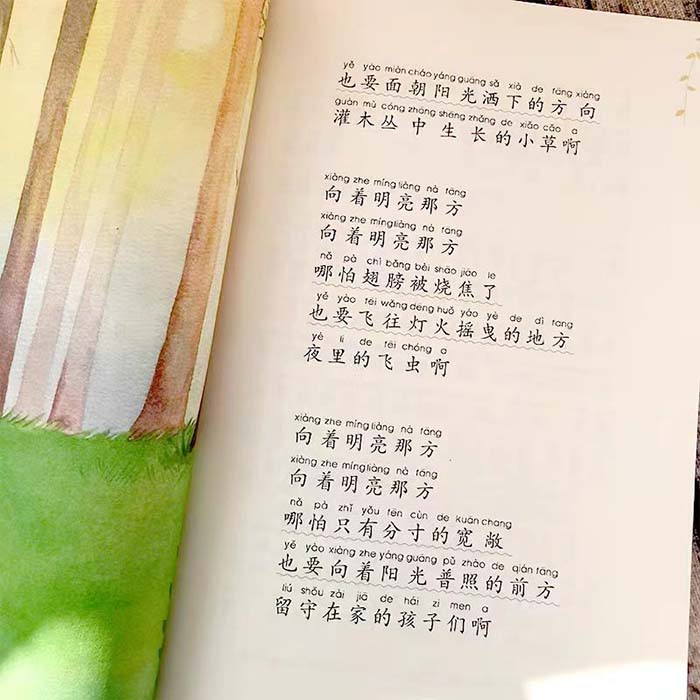 yě yào miàn cháo yáng guāng sǎ xià de fāng xiàng
也要面朝阳光洒下的方向
guàn mù cóng zhōng shēng zhǎng de xiǎo cǎo a
灌木丛中生长的小草啊
xiàng zhe míng liàng nà fāng
向着明亮那方
xiàng zhe míng liàng nà fāng
向着明亮那方
nǎ pà chì bǎng bèi shāo jiāo le
哪怕翅膀被烧焦了
yě yào fēi wǎng dēng huǒ yáo yè de dì fang
也要飞往灯火摇曳的地方
yè li de fēi chóng a
夜里的飞虫啊
xiàng zhe míng liàng nà fāng
向着明亮那方
xiàng zhe míng liàng nà fāng
向着明亮那方
nǎ pà zhǐ yǒu fēn cùn de kuān chang
哪怕只有分寸的宽敞
yě yào xiàng zhe yáng guāng pǔ zhào de qián fāng
也要向着阳光普照的前方
liú shǒu zài jiā de hái zi men a
留守在家的孩子们啊